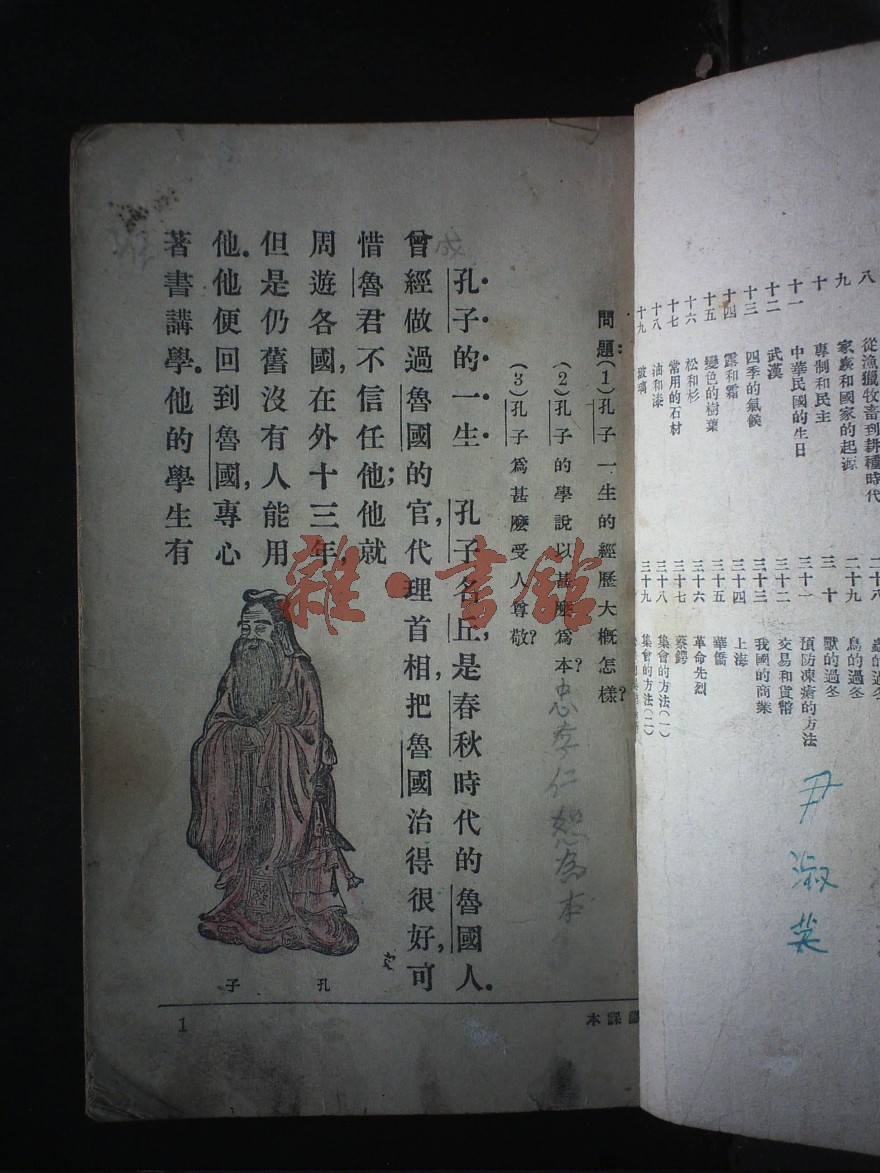 八 從漁獵牧畜到耕種時代
九 家族和國家的起源
十 專制和民主
十一 中華民國的生日
十二 武漢
十三 四季的氣候
十四 露和霜
十五 變色的樹葉
十六 松和杉
十七 常用的石材
十八 油和漆
十九 玻璃
二十八 蟲的過冬
二十九 鳥的過冬
三十 獸的過冬
三十一 預防凍瘡的方法
三十二 交易和貨幣
三十三 我國的商業
三十四 上海
三十五 華僑
三十六 革命先烈
三十七 蔡鍔
三十八 集會的方法(一)
三十九 集會的方法(二)
尹淑英
問題:(1)孔子一生的經歷大概怎樣?
(2)孔子的學說以甚麼為本?忠孝仁恕為本
(3)孔子爲甚麼受人尊敬?
孔子的一生 孔子名丘,是春秋時代的魯國人。
曾經做過魯國的官,代理首相,把魯國治得很好,可
惜魯君不信任他;他就
周遊各國,在外十三年,
但是仍舊沒有人能用
他。他便回到魯國,專心
著書講學。他的學生有
孔子
課本
1
雜·書館